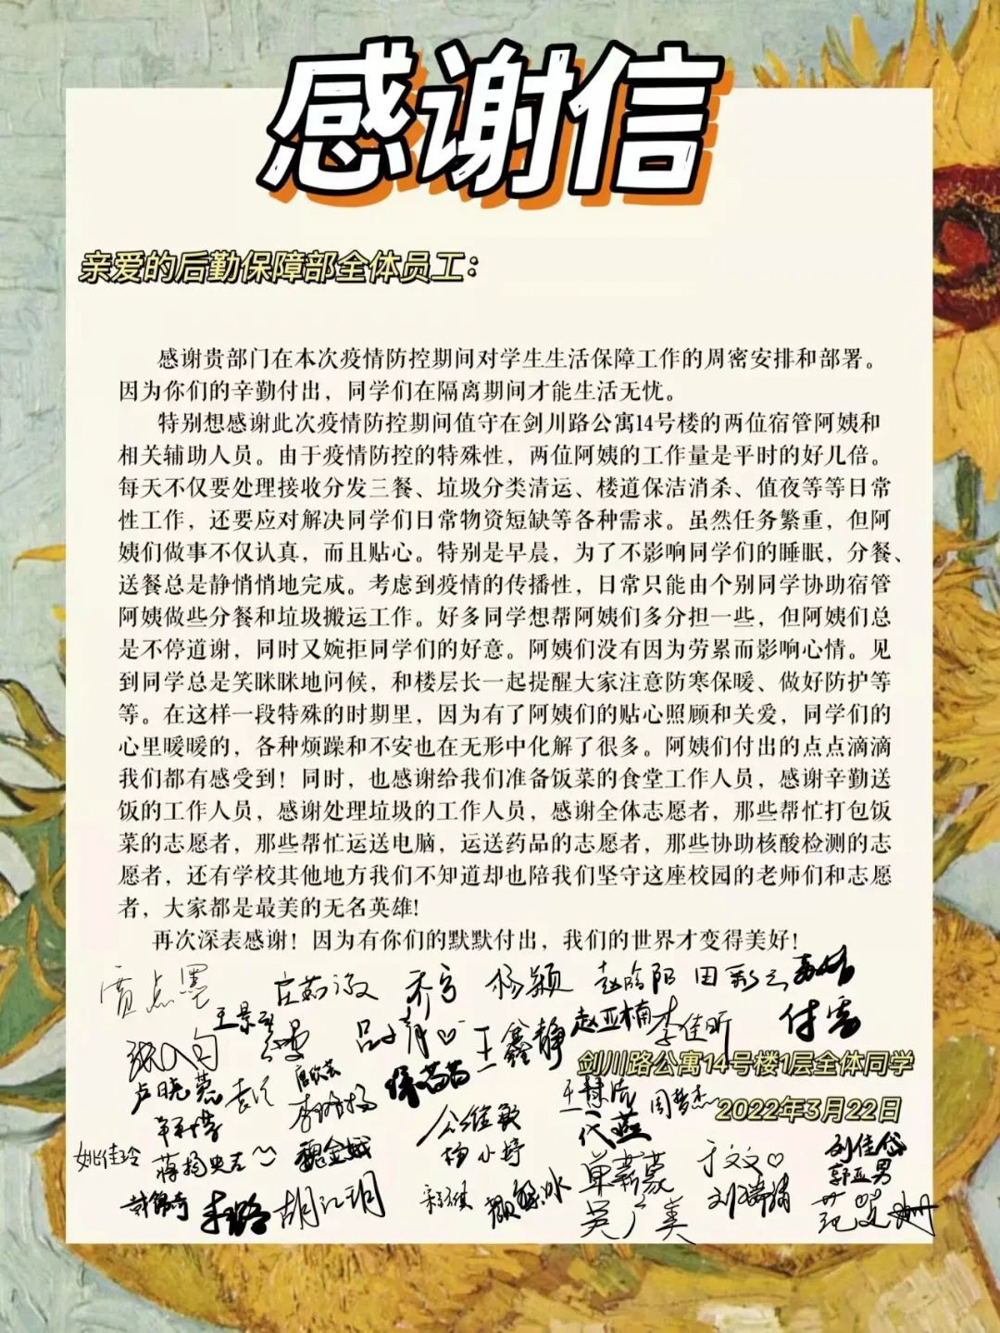 感谢信
亲爱的后勤保障部全体员工：
感谢贵部门在本次疫情防控期间对学生生活保障工作的周密安排和部署。
因为你们的辛勤付出，同学们在隔离期间才能生活无忧。
特别想感谢此次疫情防控期间值守在剑川路公寓14号楼的两位宿管阿姨和
相关辅助人员。由于疫情防控的特殊性，两位阿姨的工作量是平时的好几倍。
每天不仅要处理接收分发三餐、垃圾分类清运、楼道保洁消杀、值夜等等日常
性工作，还要应对解决同学们日常物资短缺等各种需求。虽然任务繁重，但阿
姨们做事不仅认真，而且贴心。特别是早晨，为了不影响同学们的睡眠，分餐、
送餐总是静悄悄地完成。考虑到疫情的传播性，日常只能由个别同学协助宿管
阿姨做些分餐和垃圾搬运工作。好多同学想帮阿姨们多分担一些，但阿姨们总
是不停道谢，同时又婉拒同学们的好意。阿姨们没有因为劳累而影响心情。见
到同学总是笑眯眯地问候，和楼层长一起提醒大家注意防寒保暖、做好防护等
等。在这样一段特殊的时期里，因为有了阿姨们的贴心照顾和关爱，同学们的
心里暖暖的，各种烦躁和不安也在无形中化解了很多。阿姨们付出的点点滴滴
我们都有感受到！同时，也感谢给我们准备饭菜的食堂工作人员，感谢辛勤送
饭的工作人员，感谢处理垃圾的工作人员，感谢全体志愿者，那些帮忙打包饭
菜的志愿者，那些帮忙运送电脑，运送药品的志愿者，那些协助核酸检测的志
愿者，还有学校其他地方我们不知道却也陪我们坚守这座校园的老师们和志愿
者，大家都是最美的无名英雄！
再次深表感谢！因为有你们的默默付出，我们的世界才变得美好！
杨颖 赵晗阳 田彩云
王鑫静 赵亚楠 李佳昕 付雪
剑川路公寓14号楼1层全体同学
卢晓慧
2022年3月22日
姚佳玲 魏金娥 杨小婷 代燕 于文文 刘佳岱
郭亚男
李璐 胡江玥 单薪蒙